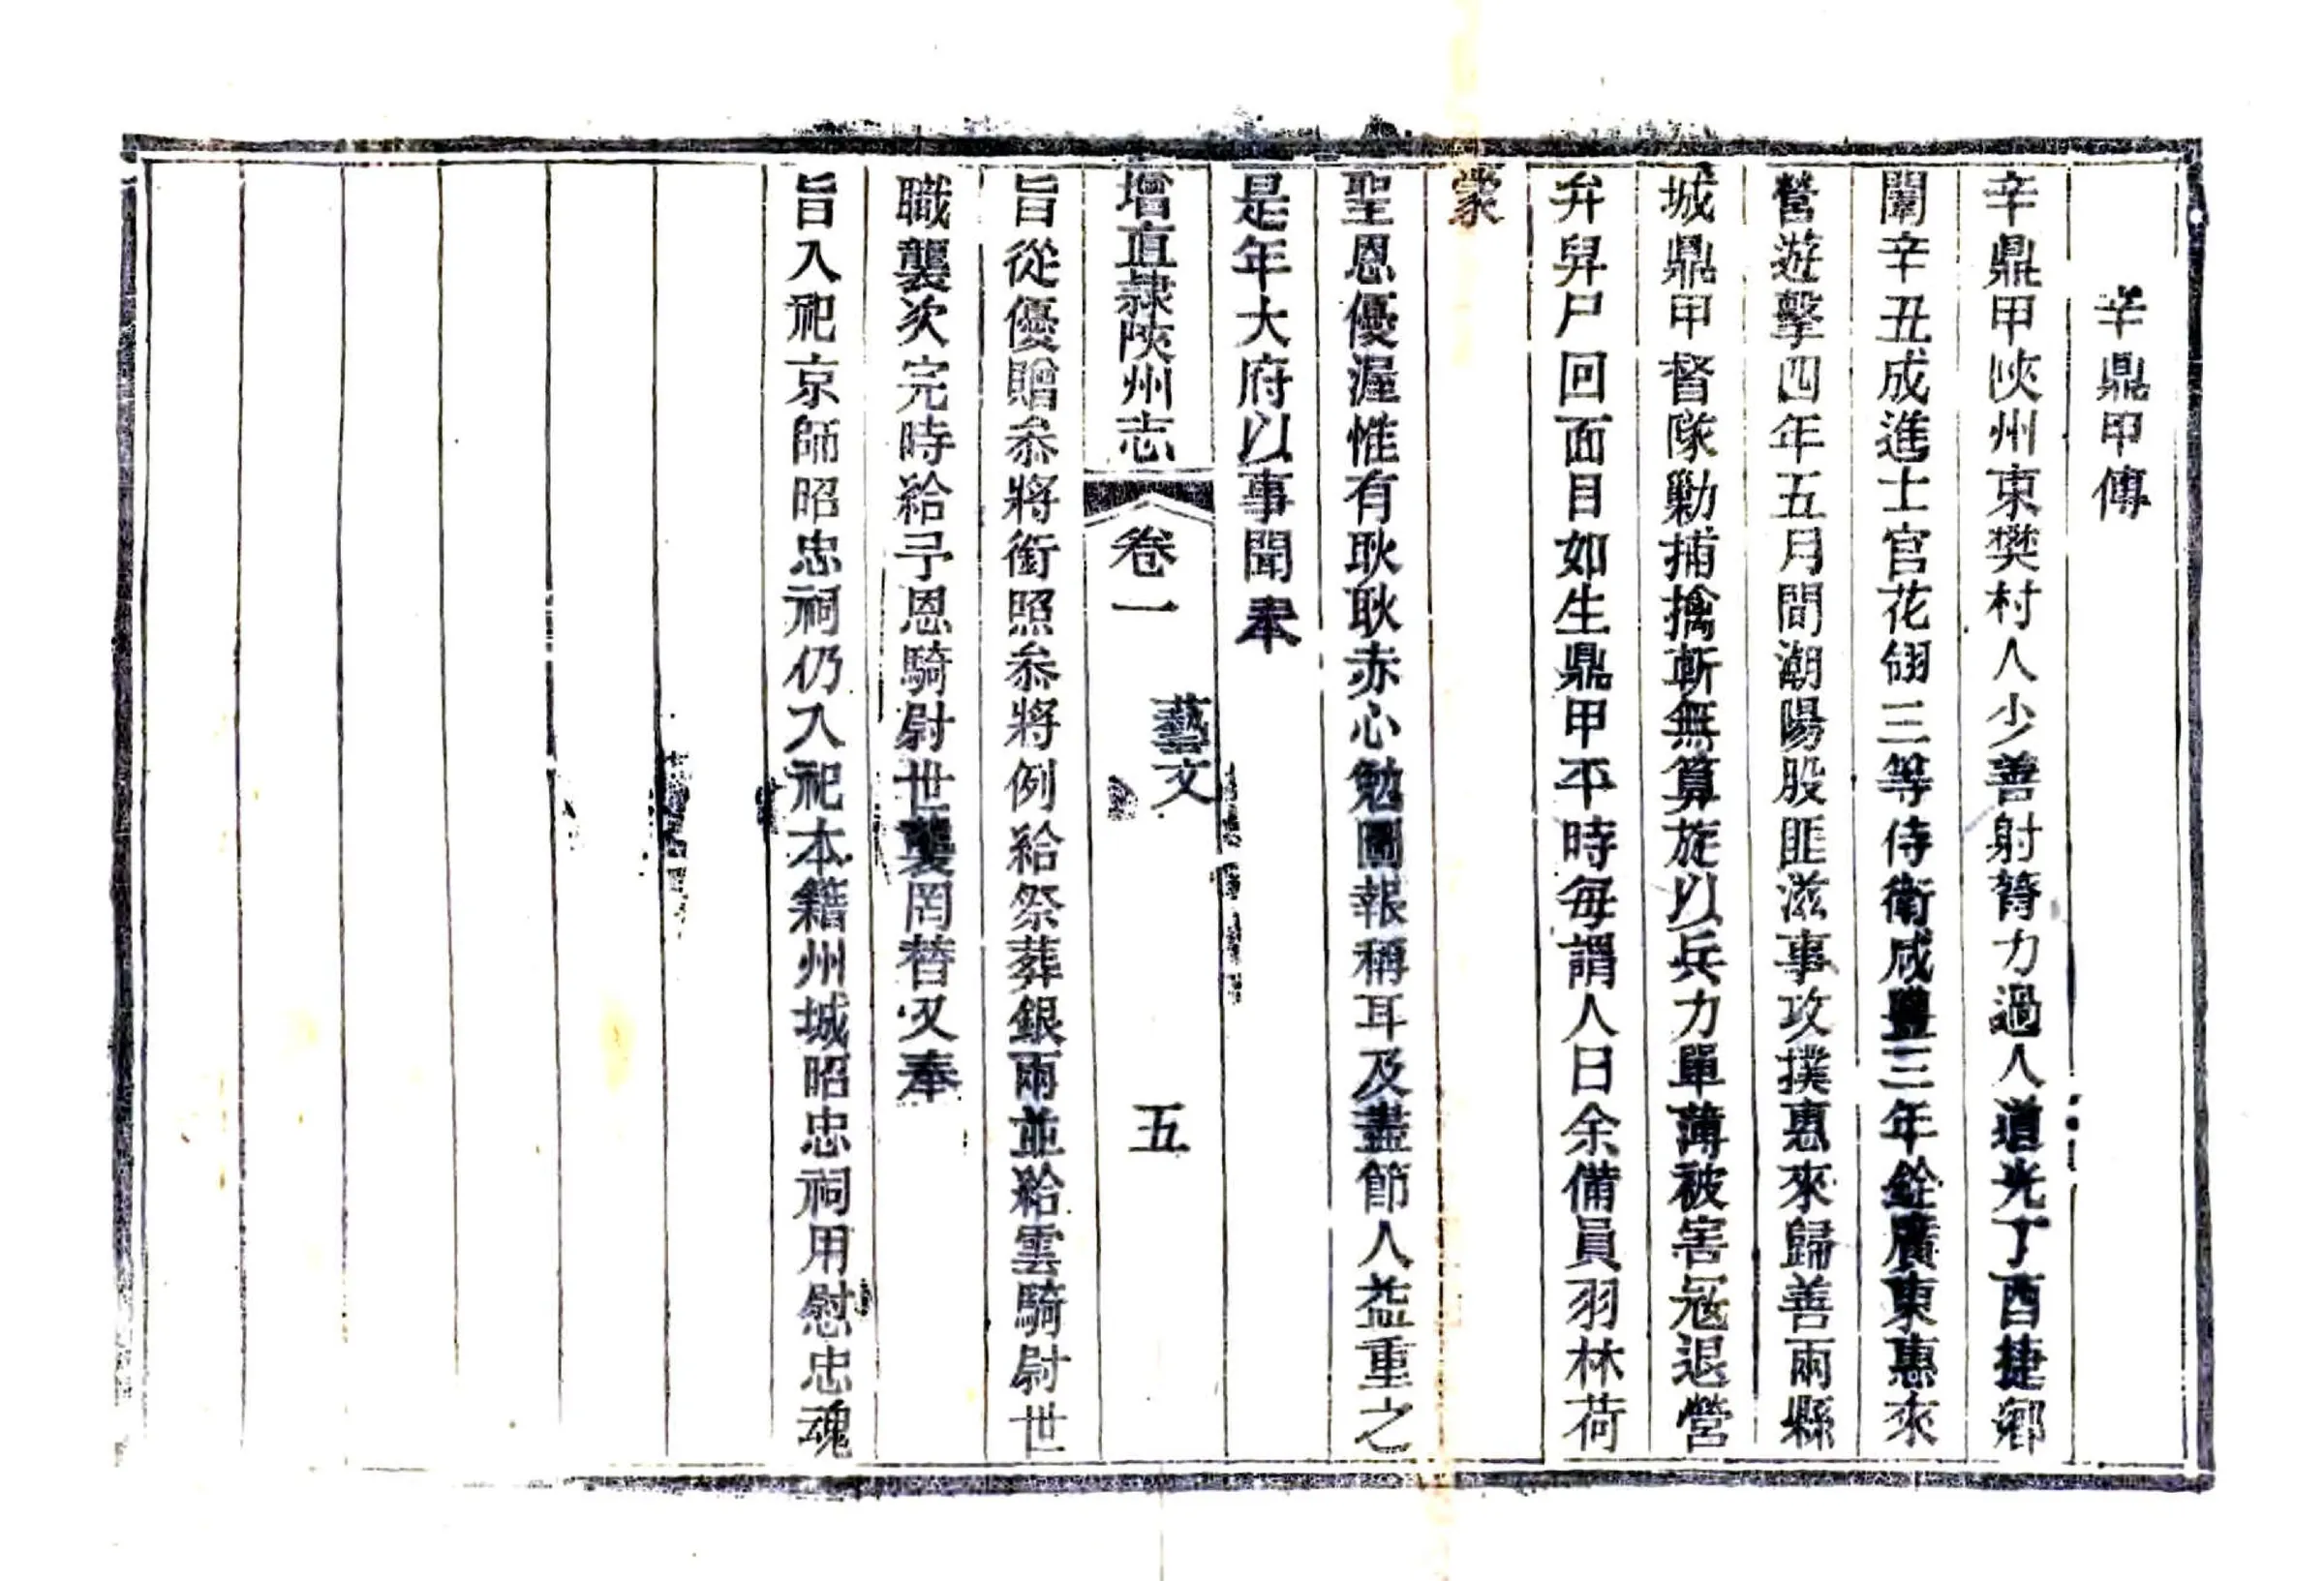 辛鼎甲傳
辛鼎甲陝州東樊村人少善射膂力過人道光丁酉捷鄉
闈辛丑成進士官花翎三等侍衛咸豐三年銓廣東惠來
營遊擊四年五月間潮陽股匪滋事攻撲惠來歸善兩縣
城鼎甲督隊勦捕擒斬無算旋以兵力單薄被害冦退營
弁舁尸回面目如生鼎甲平時每謂人曰余備員羽林荷
蒙
聖恩優渥惟有耿耿赤心勉圖報稱耳及盡節人益重之
是年大府以事聞奉
增直隷陝州志 卷一 藝文 五
旨從優贈叅將銜照叅將例給祭葬銀兩並給雲騎尉世
職襲次完時給予恩騎尉世襲罔替又奉
旨入祀京師昭忠祠仍入祀本籍州城昭忠祠用慰忠魂